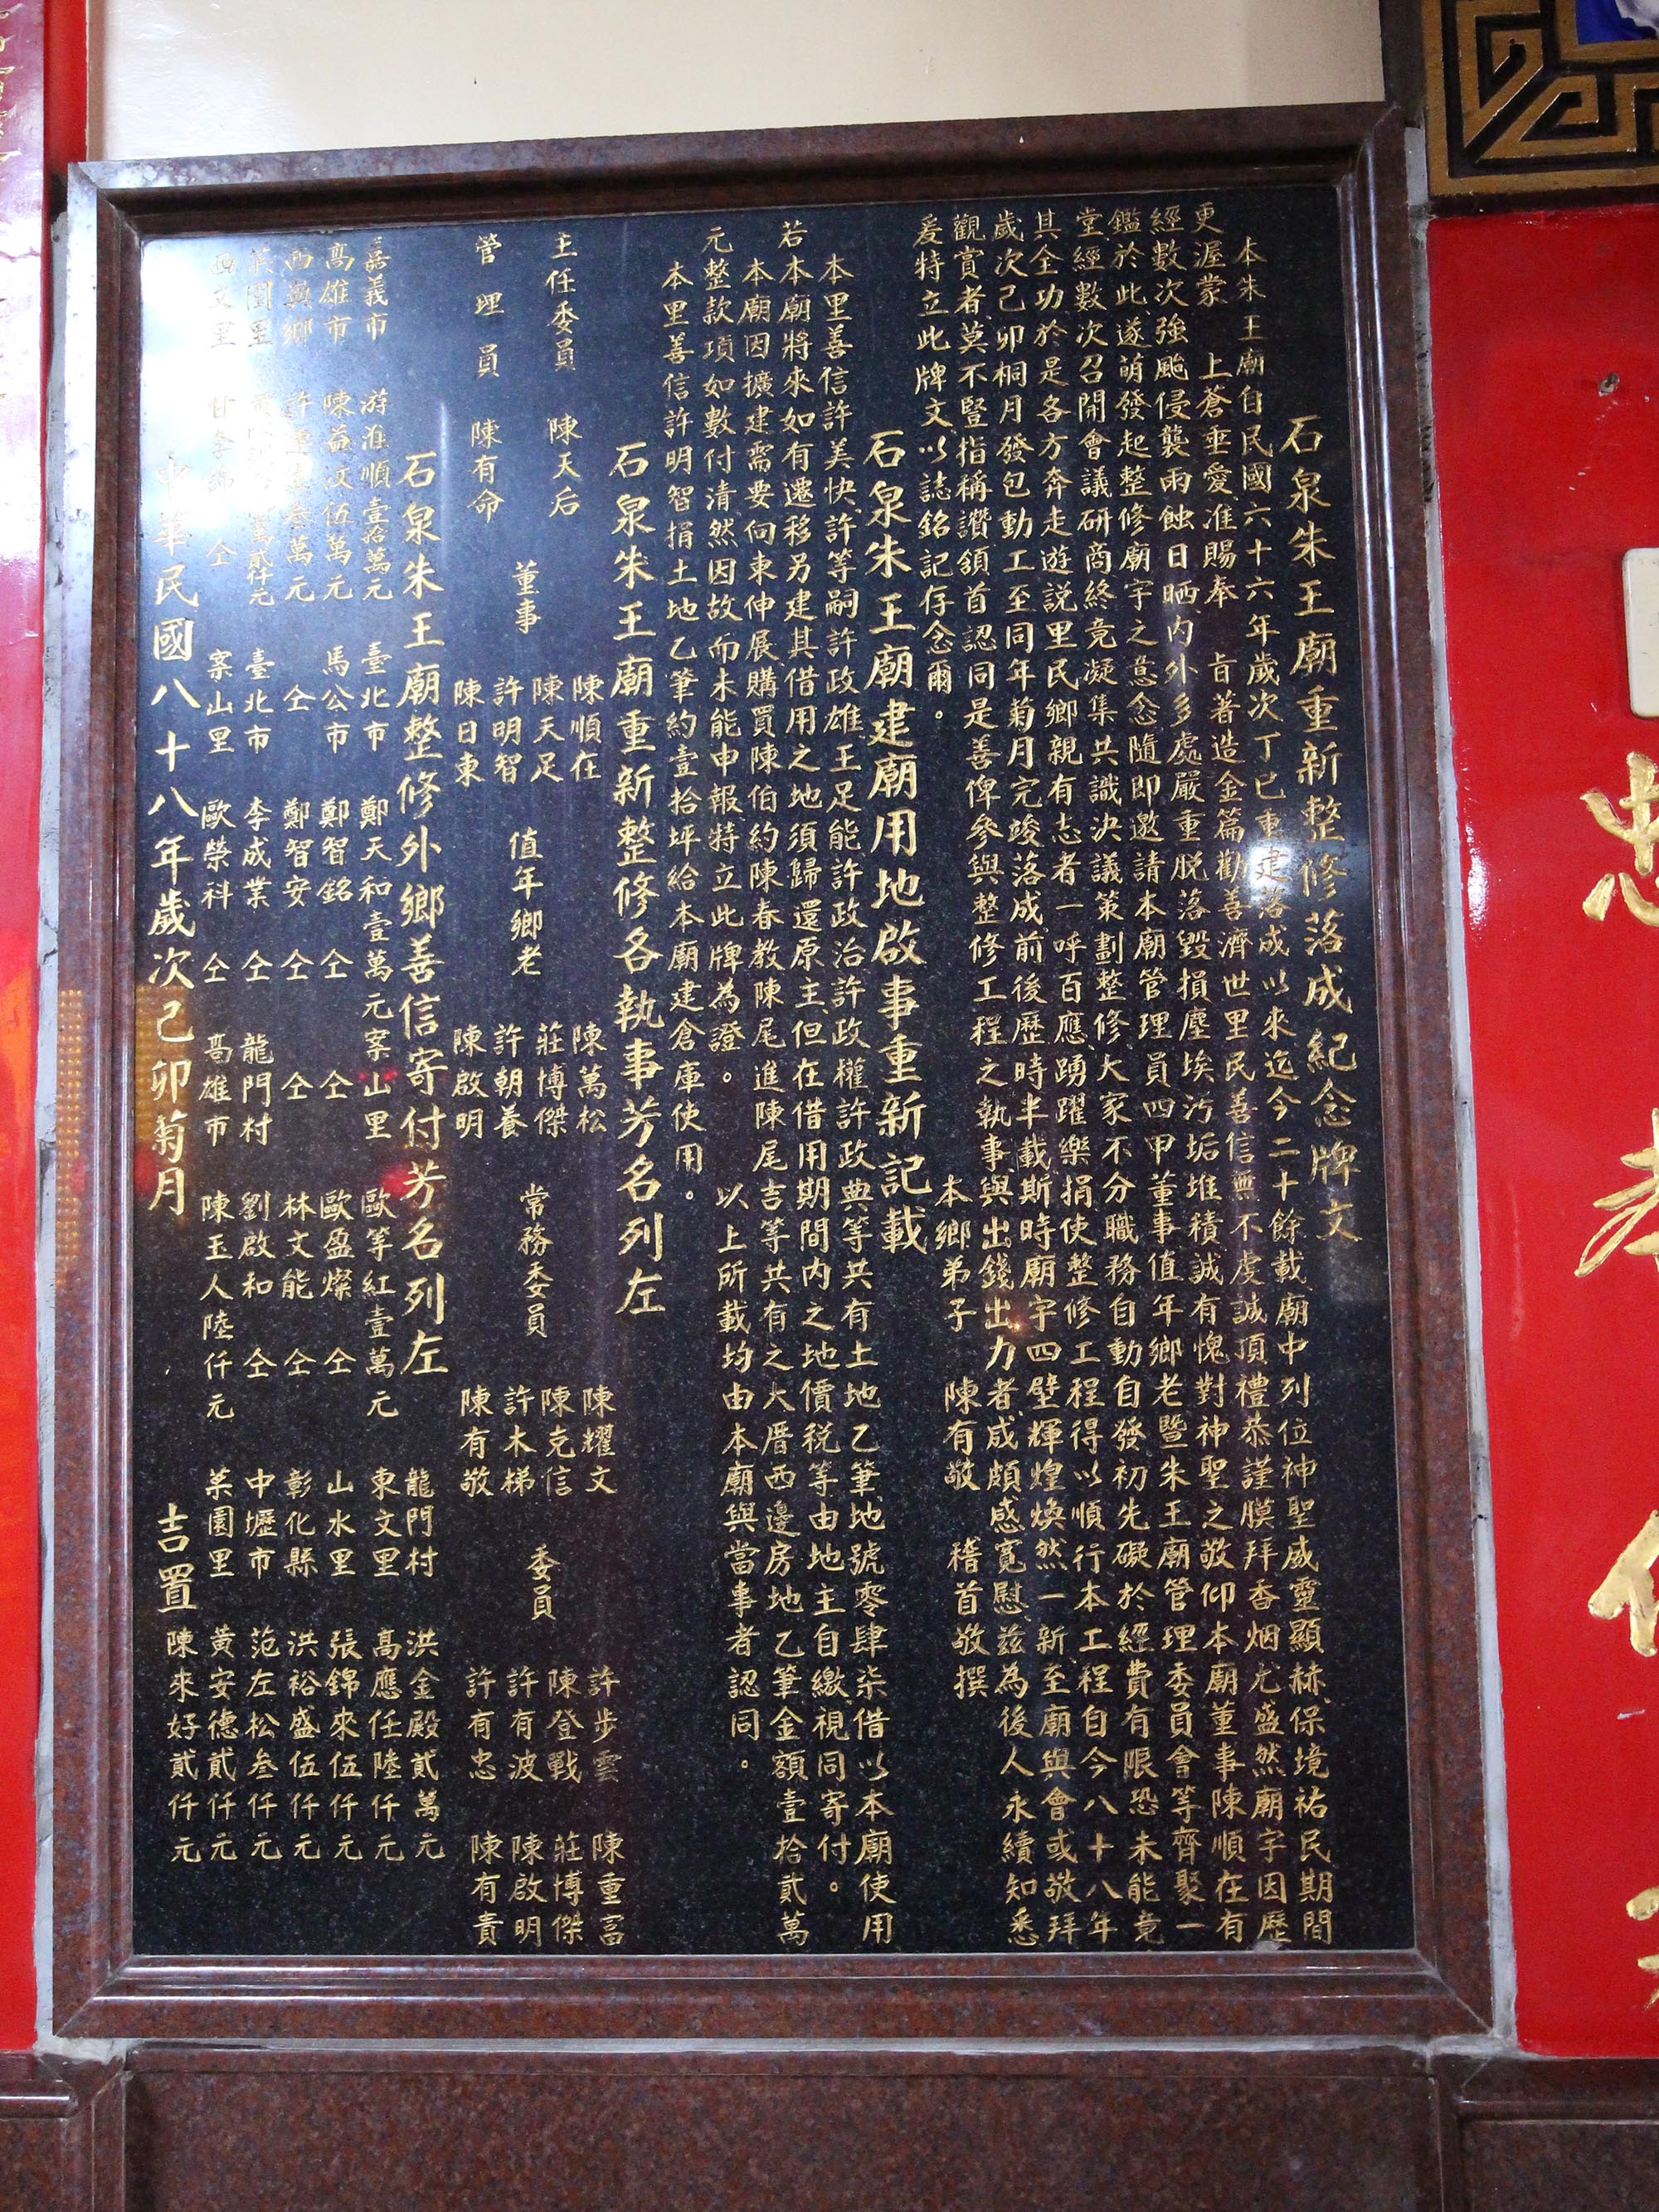 石泉朱王廟重新整修落成紀念牌文
本朱王廟自民國六十六年歲次丁巳重建落成以來迄今二十餘載廟中列位神聖威靈顯赫保境祐民期間
更渥蒙 上蒼垂愛准賜奉 旨著造金篇勸善濟世里民善信無不虔誠頂禮恭謹膜拜香烟尤盛然廟宇因歷
經數次強颱侵襲雨蝕日晒內外多處嚴重脫落毀損塵埃污垢堆積誠有愧對神聖之敬仰本廟董事陳順在有
鑑於此遂萌發起整修廟宇之意念隨即邀請本廟管理員四甲董事值年鄉老暨朱王廟管理委員會等齊聚一
堂經數次召開會議研商終竟凝集共識決議策劃整修大家不分職務自動自發初先礙於經費有限恐未能竟
其全功於是各方奔走遊說里民鄉親有志者一呼百應踴躍樂捐使整修工程得以順行本工程自今八十八年
歲次己卯桐月發包動工至同年菊月完竣落成前後歷時半載斯時廟宇四壁輝煌煥然一新至廟與會或敬拜
觀賞者莫不豎指稱讚頷首認同是善俾參與整修工程之執事與出錢出力者咸頗感寬慰茲為後人永續知悉
爰特立此牌文以誌銘記存念爾。
本鄉弟子 陳有敬 稽首敬撰
石泉朱王廟建廟用地啟事重新記載
本里善信許美快許等嗣許政雄王足能許政治許政權許政典等共有土地乙筆地號零肆柒借以本廟使用
若本廟將來如有遷移另建其借用之地須歸還原主但在借用期間內之地價稅等由地主自繳視同寄付。
本廟因擴建需要向東伸展購買陳伯約陳春教陳尾進陳尾吉等共有之大厝西邊房地乙筆金額壹拾貳萬
元整款項如數付清然因故而未能申報特立此牌為證。 以上所載均由本廟與當事者認同。
本里善信許明智捐土地乙筆約壹拾坪給本廟建倉庫使用。
石泉朱王廟重新整修各執事芳名列左
主任委員 陳天后
管理員 陳有命
董事 陳順在 陳天足 許明智 陳日東
值年鄉老 陳萬松 莊博傑 許朝養 陳啟明
常務委員 陳耀文 陳克信 許木梯 陳有敬
委員 許步雲 陳登戰 許有波 許有忠 陳重富 莊博傑 陳啟明 陳有責
石泉朱王廟整修外鄉善信寄付芳名列左
龍門村 洪金殿貳萬元
嘉義市 游淮順壹拾萬元 臺北市 鄭天和壹萬元 案山里 歐等紅壹萬元 東文里 高應任陸仟元
高雄市 陳益汶伍萬元 馬公市 鄭智銘 仝 仝 歐盈燦 仝 山水里 張錦來伍仟元
西嶼鄉 許 萬元 仝 鄭智安 仝 仝 林文能 仝 彰化縣 洪裕盛伍仟元
菜園里 萬貳仟元 臺北市 李成業 仝 龍門村 劉啟和 仝 中壢市 范左松叁仟元
西文里 仝 案山里 歐榮科 仝 高雄市 陳玉人陸仟元 菜園里 黃安德貳仟元
陳來好貳仟元
中華民國八十八年歲次己卯菊月 吉置